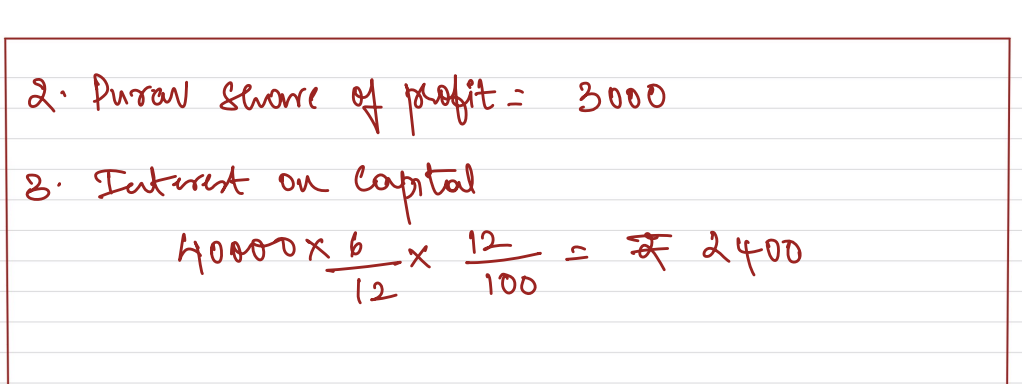 2. Purav share of profit = 3000
3. Interest on Capital
40000 × 6/12 × 12/100 = ₹ 2400